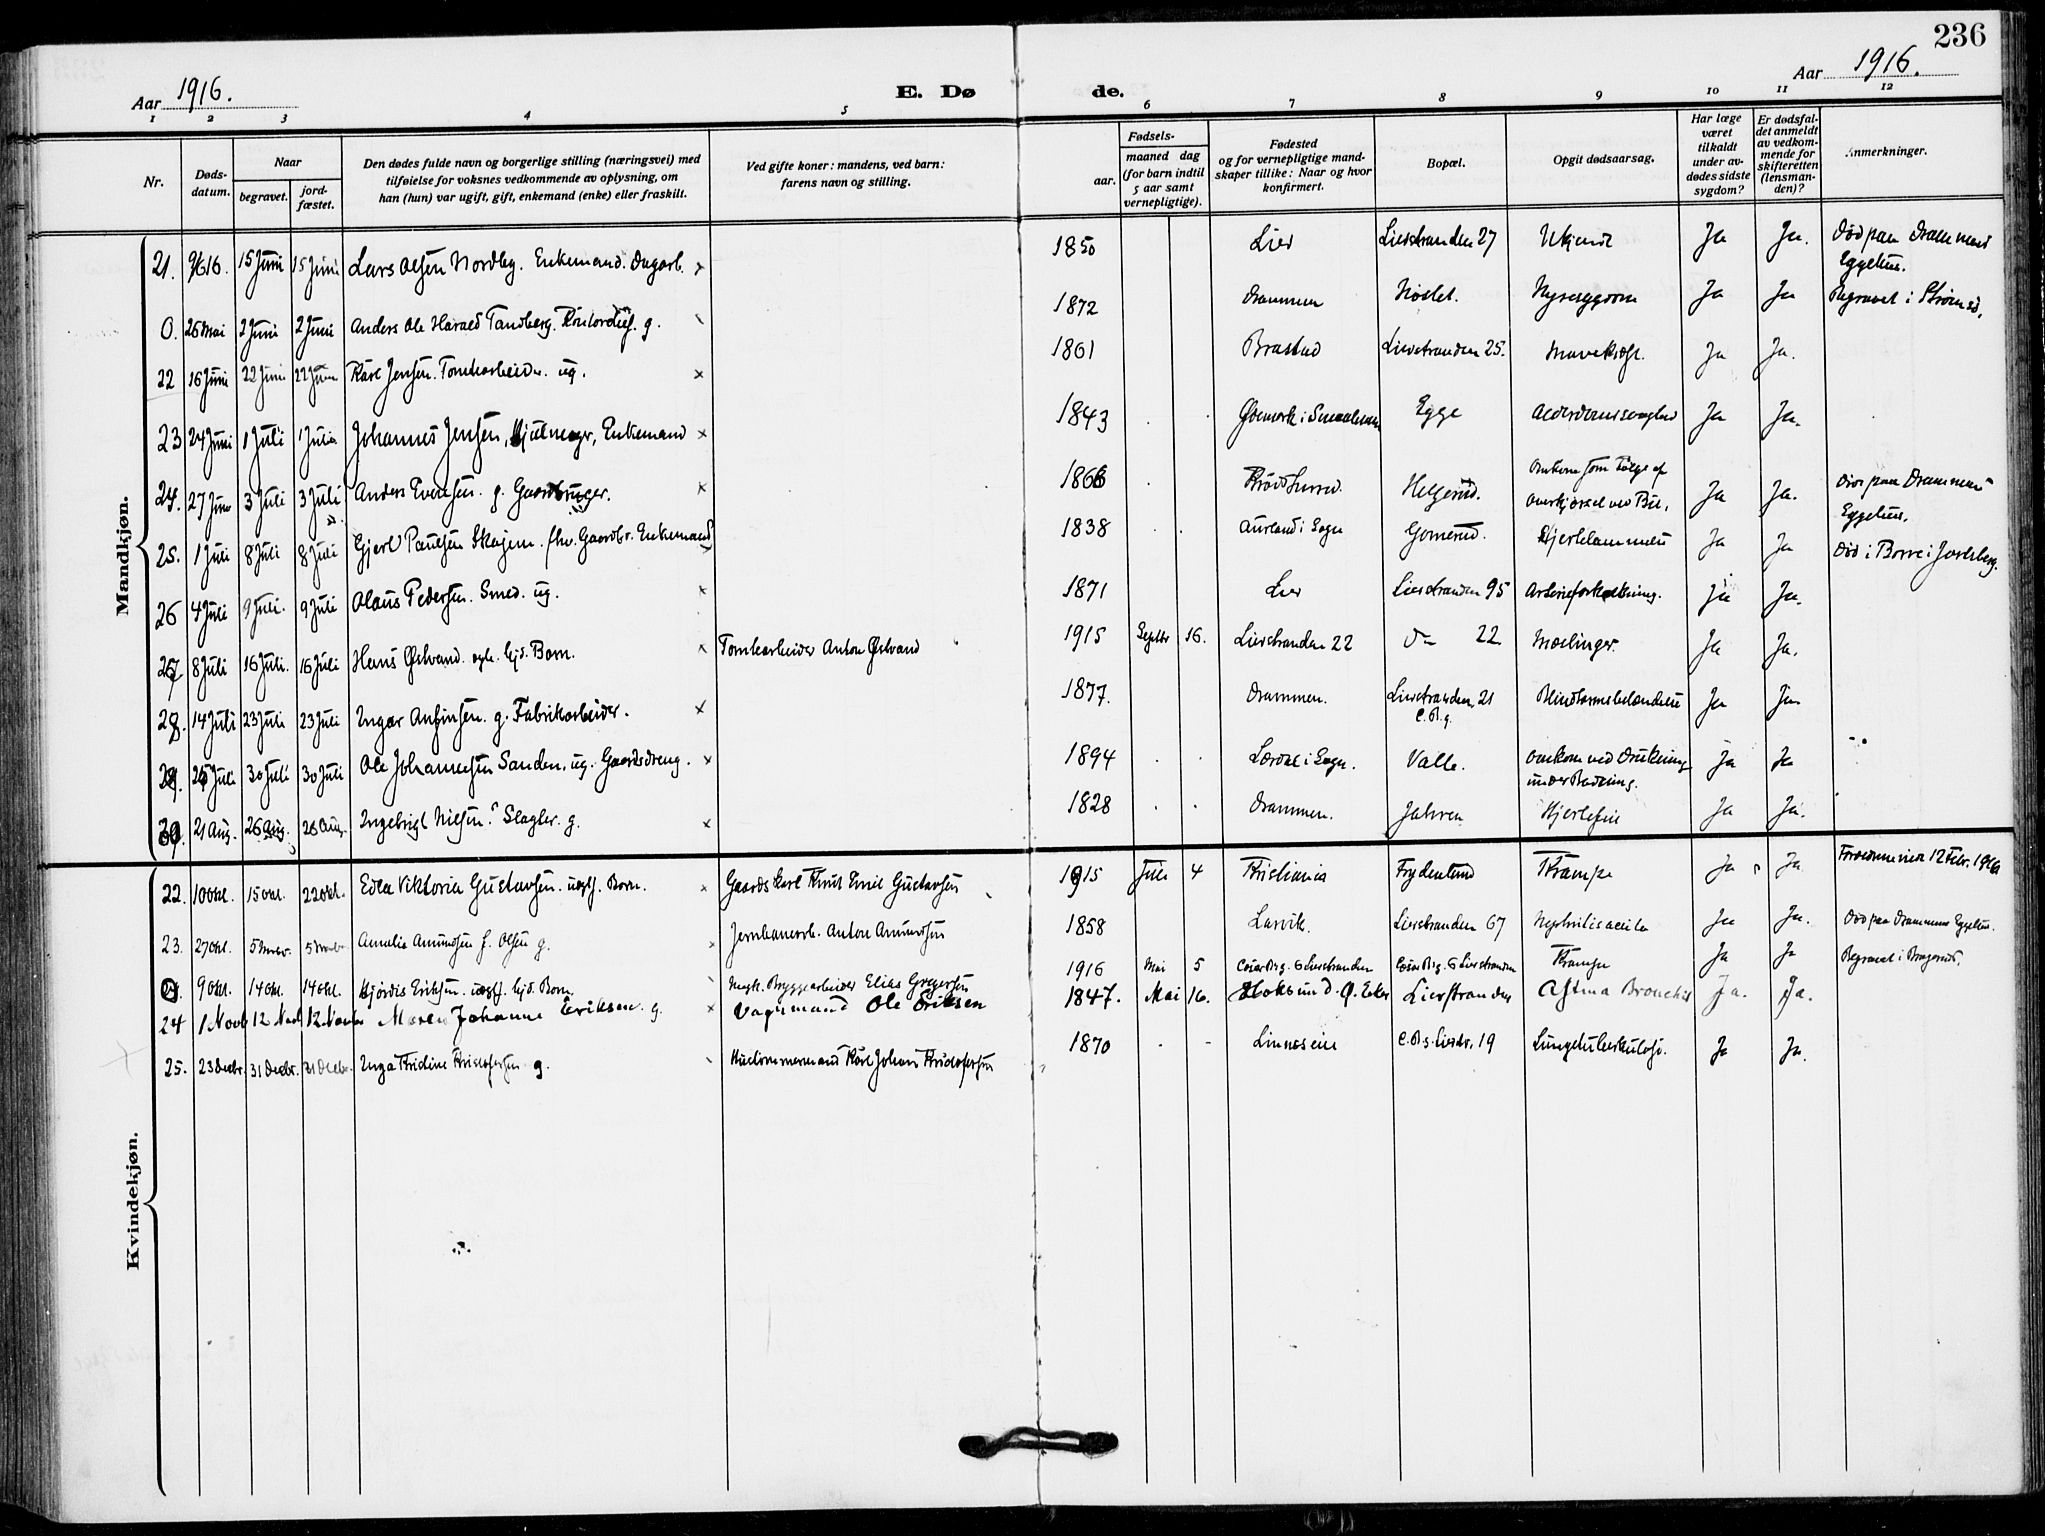 236
Aar 1916.
E. Dø de.
Aar 1916.
1 2 3 4 5 6 7 8 9 10 11 12
Nr.
Døds-
datum.
Naar
begravet.
jord-
fæstet.
Den dødes fulde navn og borgerlige stilling (næringsvei) med
tilføielse for voksnes vedkommende av oplysning, om
han (hun) var ugift, gift, enkemand (enke) eller fraskilt.
Ved gifte koner: mandens, ved barn:
farens navn og stilling.
Fødsels-
aar.
maaned dag
(for barn indtil
5 aar samt
vernepligtige).
Fødested
og for vernepligtige mand-
skaper tillike: Naar og hvor
konfirmert.
Bopæl.
Opgit dødsaarsag.
Har læge
været
tilkaldt
under av-
dødes sidste
sygdom?
Er dødsfal-
det anmeldt
av vedkom-
mende for
skifteretten
(lensman-
den)?
Anmerkninger.
Mandkjøn.
21. 9/6 16. 15 Juni 15 Juni Lars Olsen Nordby. Enkemand. Dagarb. x 1850 Lier Lierstranden 27 Ukjendt Ja Ja. Død paa Drammens
Sygehus.
0. 26 Mai 2 Juni 2 Juni Anders Ole Harald Tandberg. Kontorchef. g. 1872 Drammen Nøste. Nyresygdom Ja Ja Begravet i Strømsø.
22 16 Juni 22 Juni 22 Juni Karl Jensen. Tomtearbeider. ug. x 1861 Brastad Lierstranden 25. Mavekræft. Ja Ja.
23 24 Juni 1 Juli 1 Juli Johannes Jensen, Hjulmager, Enkemand x 1843 Øiemark i Smaalenene Egge Alderdomssvaghed Ja Ja.
24. 27 Juni 3 Juli 3 Juli Anders Evensen. g. Gaardbruger. x 1866 Krødsherred. Helgerud. Omkom som følge af
overkjørsel ved Bil. Ja Ja. Død paa Drammens
Sygehus.
25. 1 Juli 8 Juli 8 Juli Gjert Paulsen Skajem. fhv. Gaardbr. Enkemand 1838 Aurland i Sogn Gomerud. Hjertelammelse Ja Ja Død i Borre i Jarlsberg.
26 4 Juli 9 Juli. 9 Juli Olaus Pedersen. Smed. ug. x 1871 Lier Lierstranden 95 Arterieforkalkning. Ja Ja.
27 8 Juli 16 Juli. 16 Juli Hans Østvand. egte. hjd. Barn. x Tomtearbeider Anton Østvand 1915 Septbr 16. Lierstranden 22 do 22 Mæslinger. Ja Ja.
28 14 Juli 23 Juli 23 Juli Ingar Anfinsen. g. Fabrikarbeider. x 1877. Drammen. Lierstranden 21
C.B.g. Blindtarmsbetændelse Ja Ja
29. 25 Juli 30 Juli 30 Juli Ole Johannesen Sanden, ug. Gaardsdreng. x 1894 Lærdal i Sogn. Valle. Omkom ved Drukning
under Badning. Ja Ja
30. 21 Aug. 26 Aug. 26 Aug. Ingebrigt Nilsen. Slagter. g. x 1828 Drammen. Jahren Hjertefeil Ja Ja.
Kvindekjøn.
22. 10 Okt. 15 Okt. 22 Okt. Edla Viktoria Gustavsen. uegtf. Barn. x Gaardskarl Knut Emil Gustavsen 1915 Juli 4 Kristiania Frydenlund Krampe Ja Ja
23. 27 Okt. 5 Novbr. 5 Novbr. Amalia Amundsen f. Olsen g. x Jernbanearb. Anton Amundsen 1858 Larvik. Lierstranden 67 Nephritis acuta Ja Ja. Død paa Drammens Sygehus.
9 Okt. 14 Okt. 14 Okt. Hjørdis Eriksen. uegtf. hjd. Barn. Bryggearbeider Elias Gregersen 1916 Mai 5 6 Lierstranden 6 Lierstranden Krampe Ja Ja Begravet i Bragernes.
24 1 Novb 12 Nov 12 Novbr Maren Johanne Eriksen. g. x Vognmand Ole Eriksen 1847. Mai 16. Hoksund. Ø. Eker Lierstranden Astma Bronchit Ja. Ja.
25. 23 Decbr. 31 Decbr. 31 Decbr. Inga Kristine Kristofersen g. Hustømmermand Karl Johan Kristofersen 1870 19 Lungetuberkulose. Ja Ja.